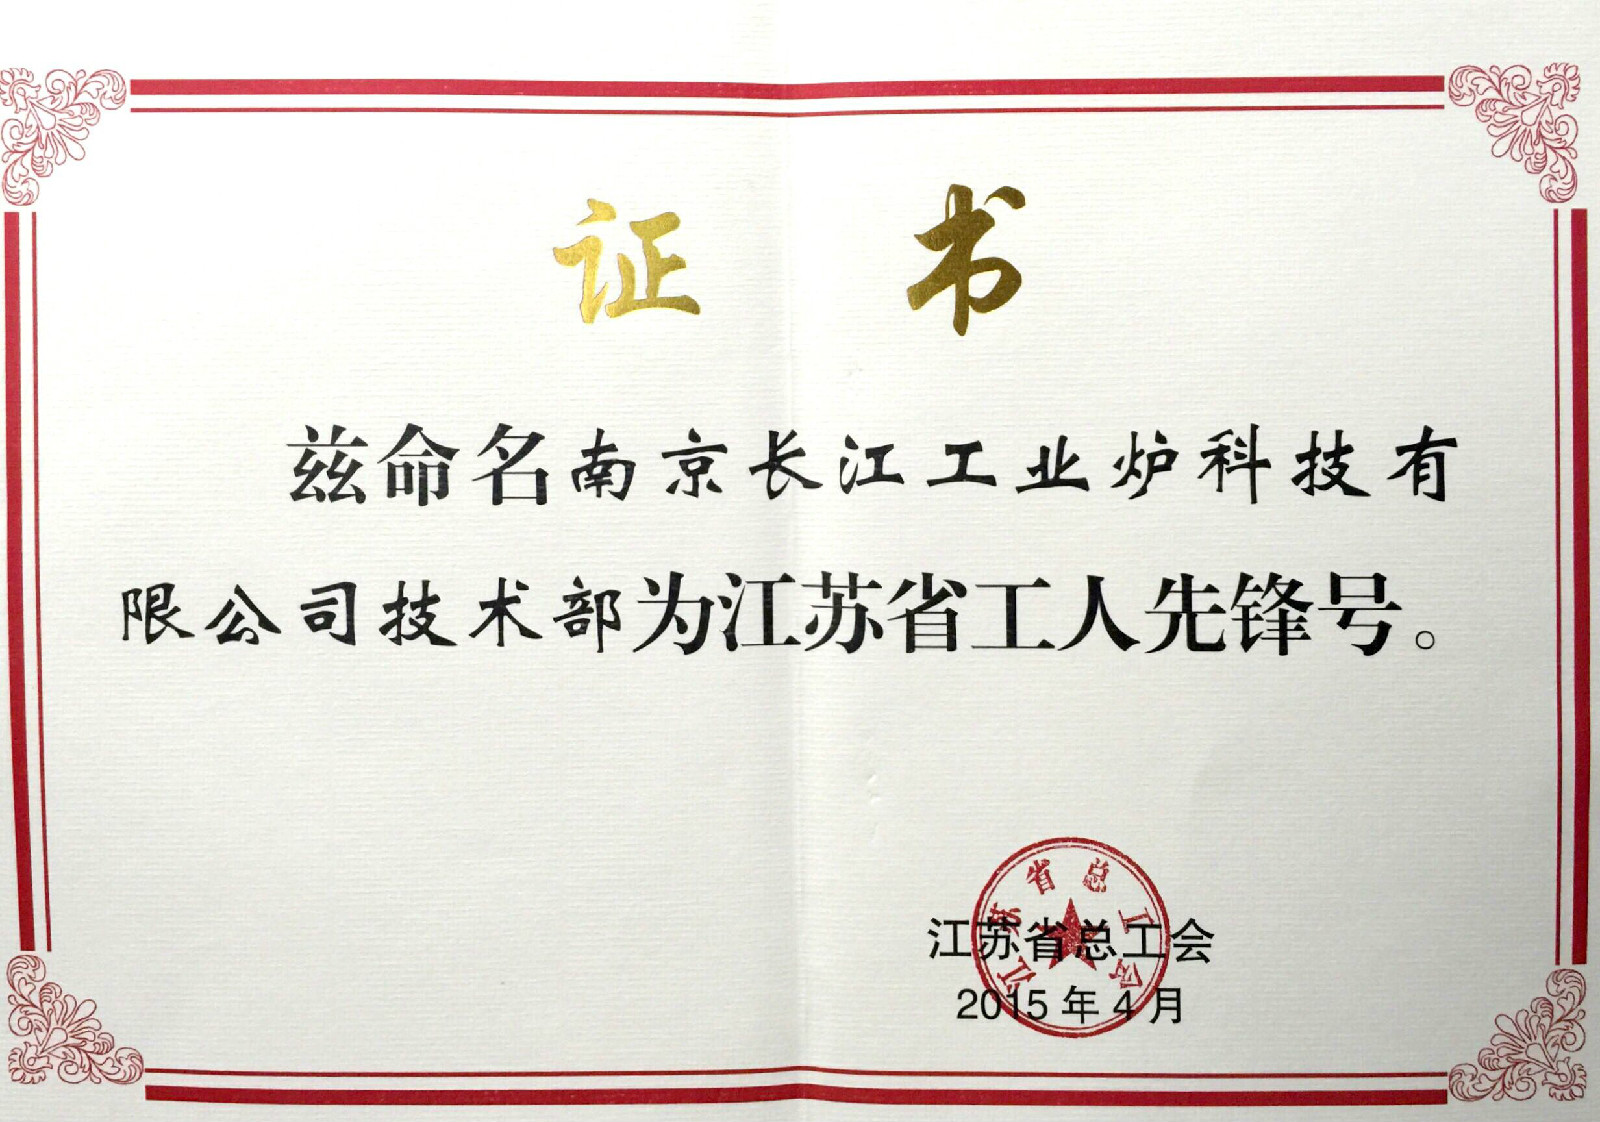 证书
兹命名南京长江工业炉科技有
限公司技术部为江苏省工人先锋号。
江苏省总工会
江苏省总工会
2015年4月